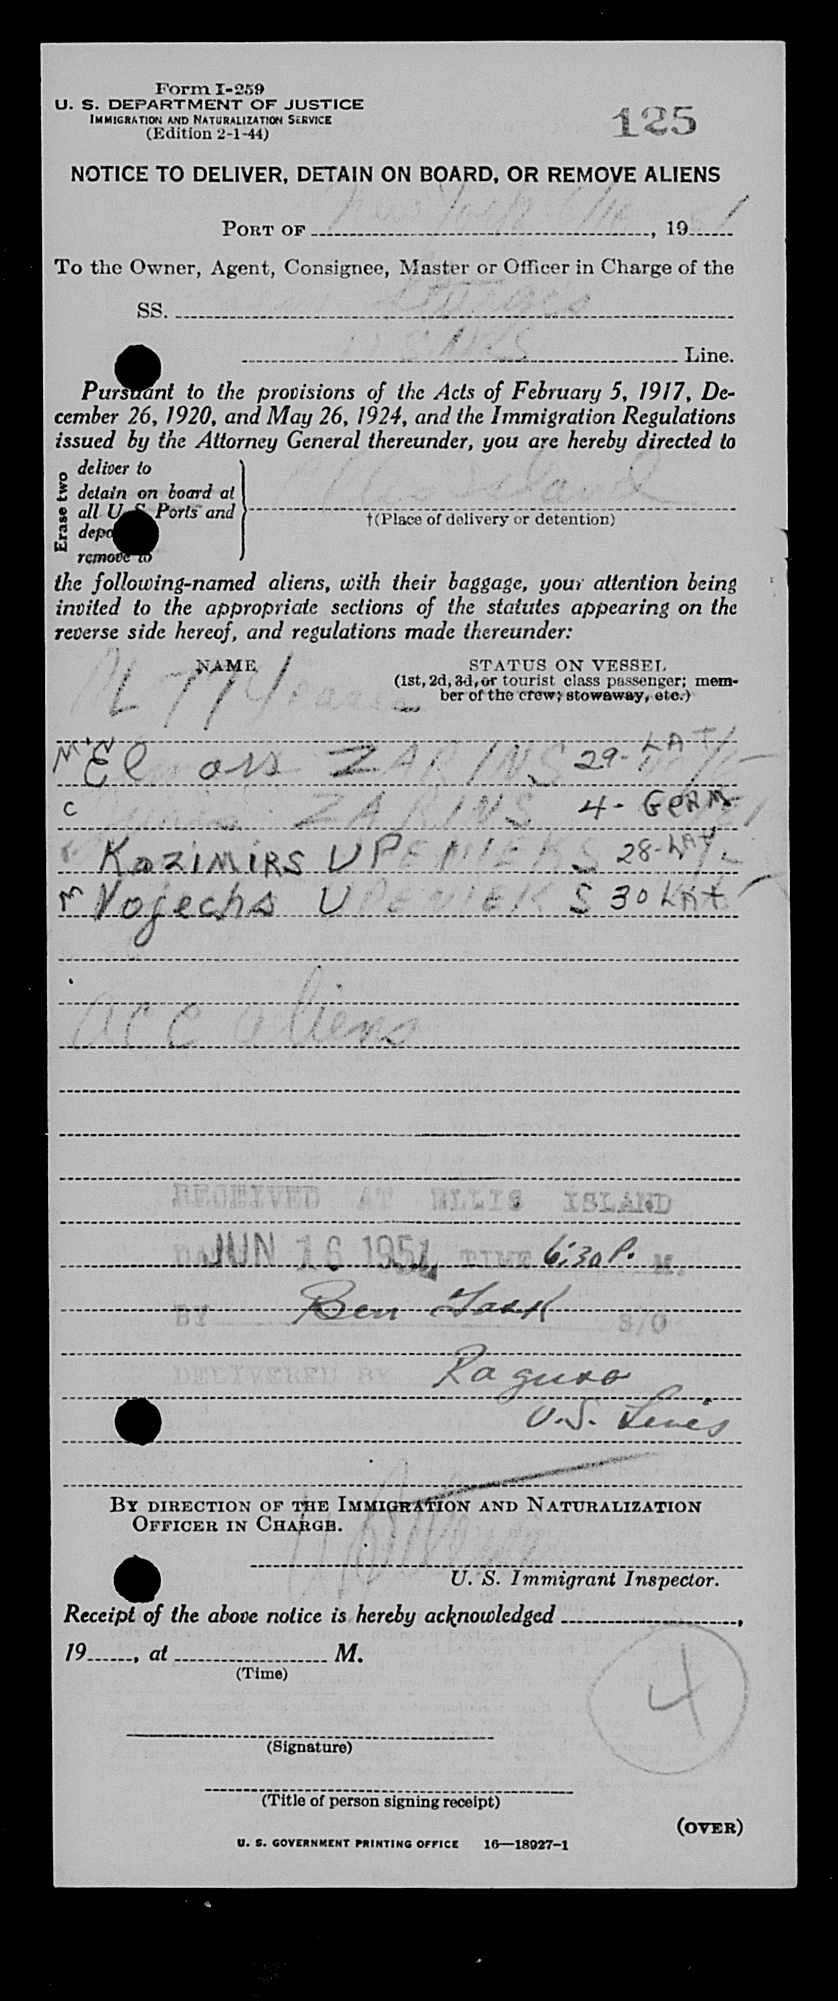 Form I-259
U. S. DEPARTMENT OF JUSTICE
IMMIGRATION AND NATURALIZATION SERVICE
(Edition 2-1-44)
125
NOTICE TO DELIVER, DETAIN ON BOARD, OR REMOVE ALIENS
PORT OF New York 6/16, 1951
To the Owner, Agent, Consignee, Master or Officer in Charge of the
SS. Sturgis
Line.
Pursuant to the provisions of the Acts of February 5, 1917, De-
cember 26, 1920, and May 26, 1924, and the Immigration Regulations
issued by the Attorney General thereunder, you are hereby directed to
Erase two
deliver to
detain on board at
all U. S. Ports and
remove to
Ellis Island
†(Place of delivery or detention)
the following-named aliens, with their baggage, your attention being
invited to the appropriate sections of the statutes appearing on the
reverse side hereof, and regulations made thereunder:
NAME
STATUS ON VESSEL
(1st, 2d, 3d, or tourist class passenger; mem-
ber of the crew; stowaway, etc.)
M ZARINS 29-LAT
C ZARINS 4-GERM
Kazimirs UPENIEKS 28-LAT.
M Vojechs UPENIEKS 30 LAT
acc aliens
RECEIVED AT ELLIS ISLAND
DATE JUN 16 1951 TIME 6:30 P. M.
BY Ben S/O
DELIVERED BY Raguso
U.S. Lines
BY DIRECTION OF THE IMMIGRATION AND NATURALIZATION
OFFICER IN CHARGE.
U. S. Immigrant Inspector.
Receipt of the above notice is hereby acknowledged ,
19 , at M.
(Time)
4
(Signature)
(Title of person signing receipt)
(OVER)
U. S. GOVERNMENT PRINTING OFFICE 16—18927-1